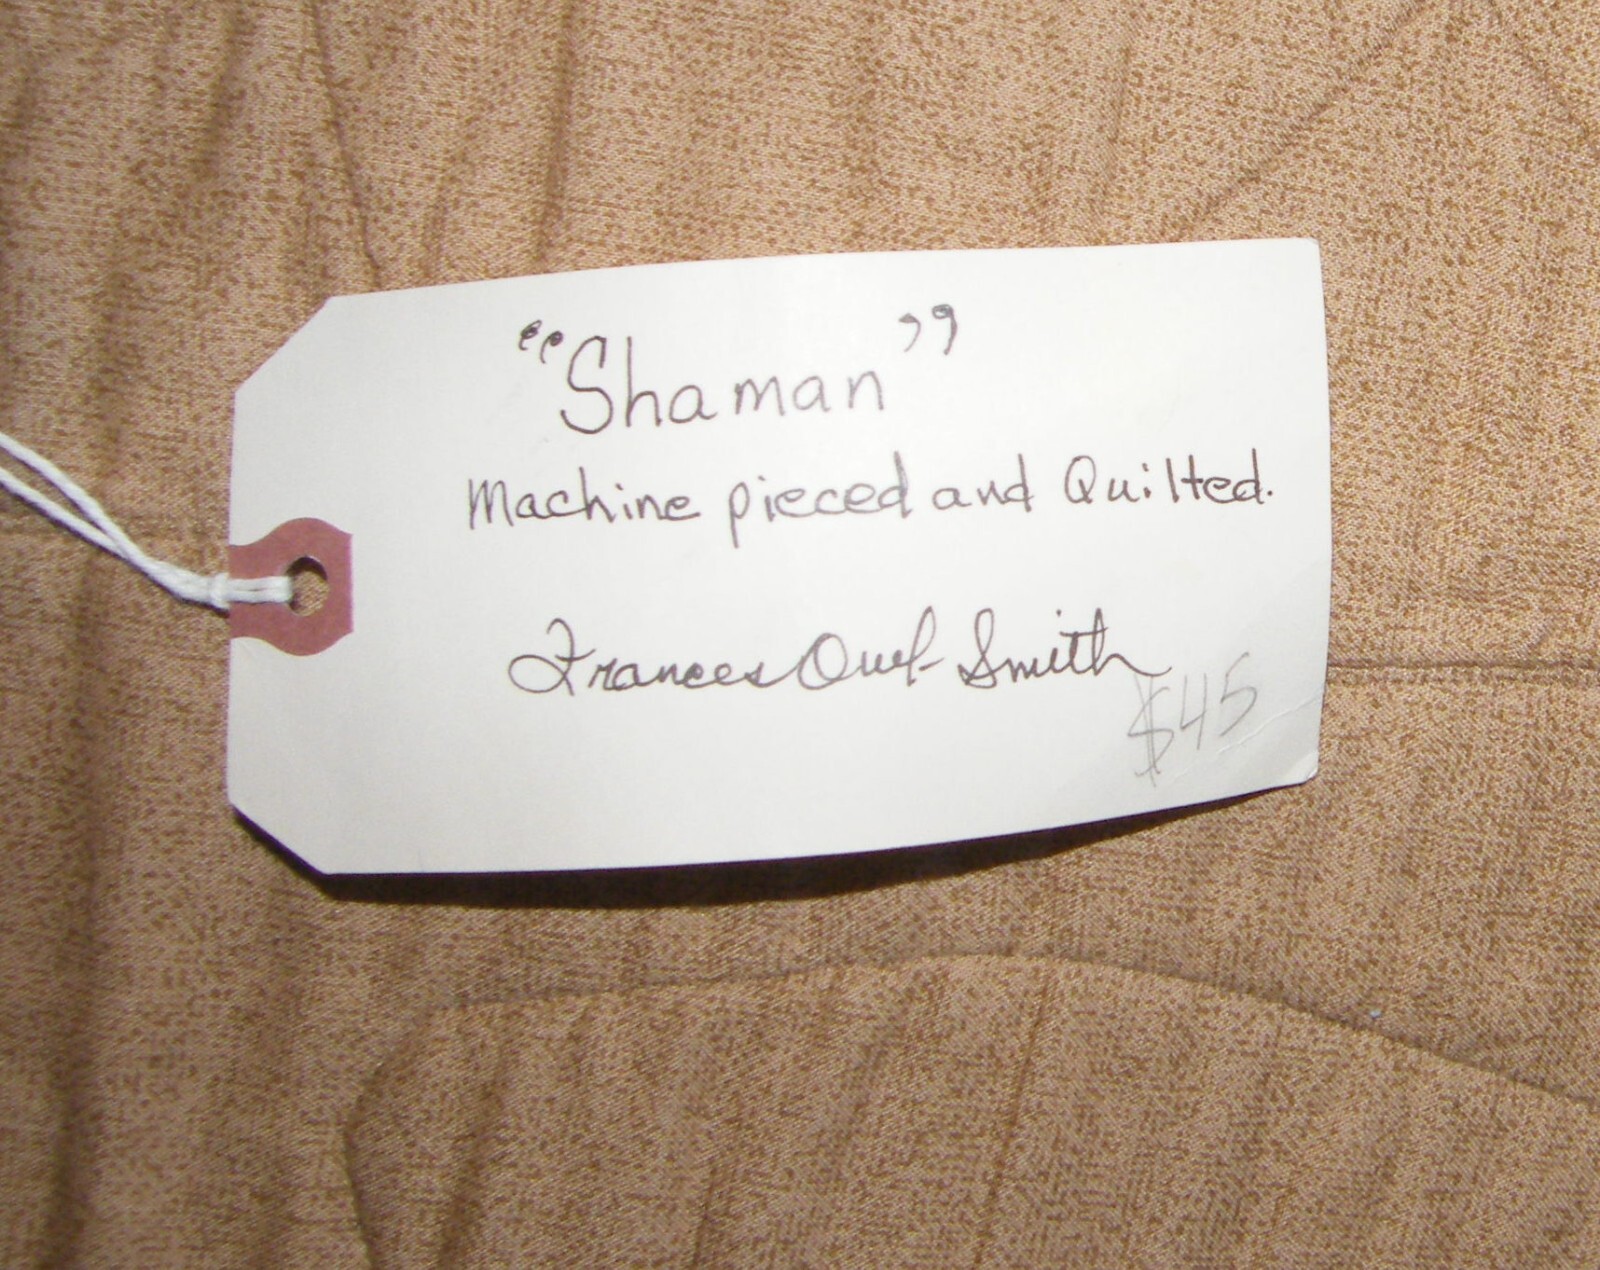 "Shaman"
Machine pieced and Quilted.
Frances Owl-Smith
$45